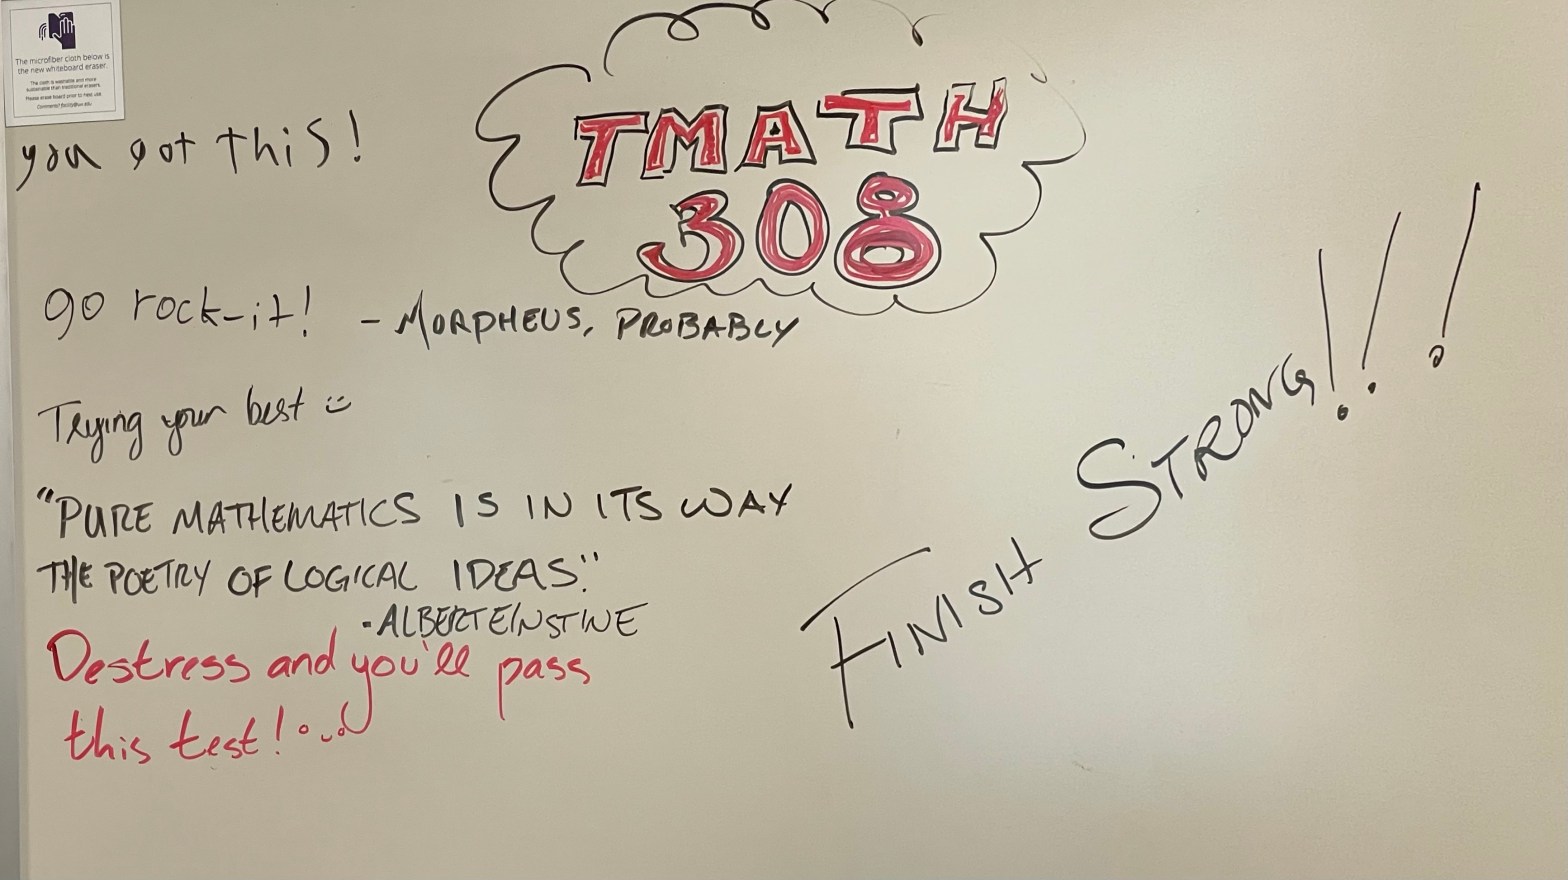 The microfiber cloth below is
the new whiteboard eraser.
The cloth is washable and more
sustainable than traditional erasers.
Please erase board prior to
TMATH
308
you got this!
go rock-it!
- MORPHEUS, PROBABLY
Trying your best
"PURE MATHEMATICS IS IN ITS WAY
THE POETRY OF LOGICAL IDEAS."
- ALBERT EINSTINE
Destress and you'll pass
this test!
FINISH STRONG!!!